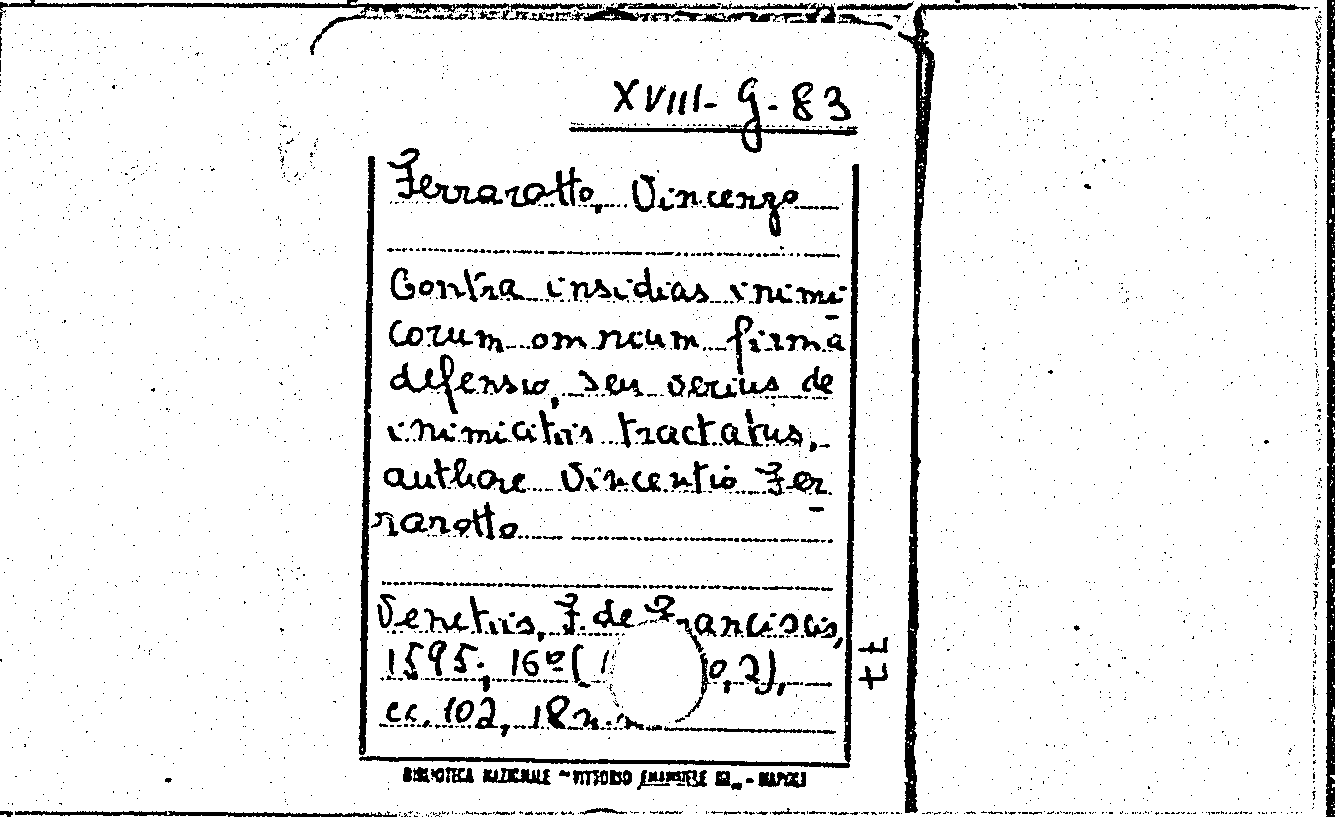 XVIII - G - 83
Ferrarotto, Vincenzo
Contra insidias inimi
corum omnium firma
defensio, seu verius de
inimicitiis tractatus,
authore Vincentio Fer
rarotto
Venetiis, F. de Franciscis,
1595; 16º (1 0,2),
cc. 102, 18 n.n
BIBLIOTECA NAZIONALE "VITTORIO EMANUELE III" - NAPOLI